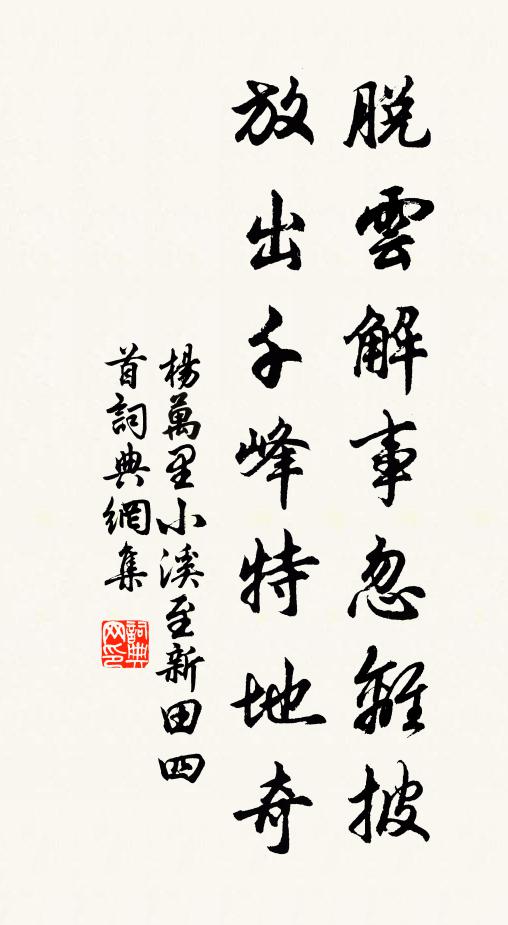 脫雲解事忽離披
放出千峰特地奇
楊萬里小溪至新田四
首詞典網集
詞典
网印